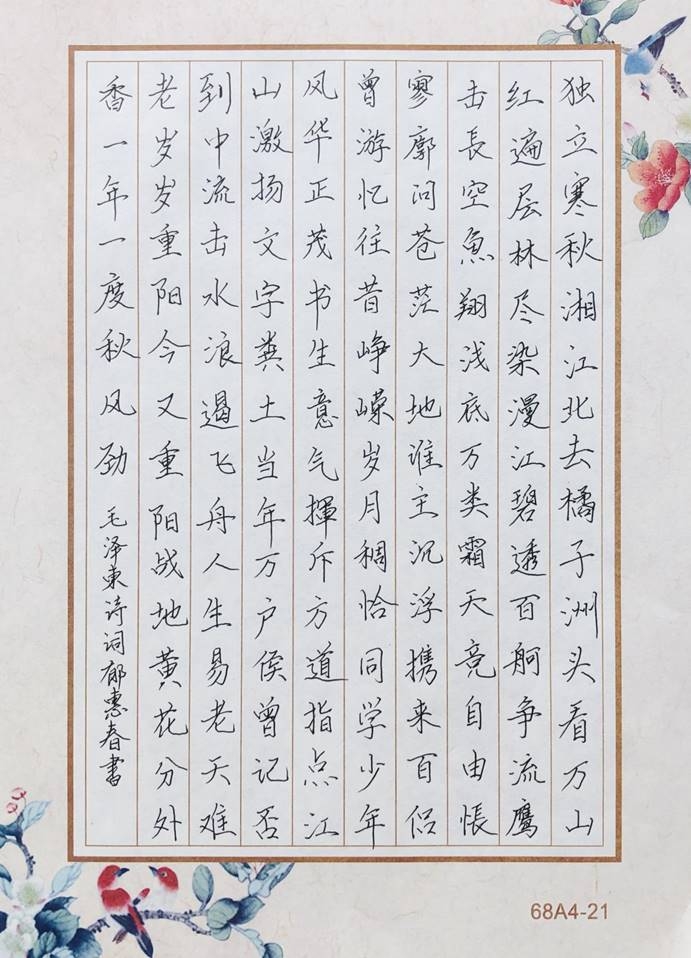 独立寒秋湘江北去橘子洲头看万山
红遍层林尽染漫江碧透百舸争流鹰
击長空魚翔浅底万类霜天竞自由怅
寥廓问苍茫大地谁主沉浮携来百侣
曾游忆往昔峥嵘岁月稠恰同学少年
风华正茂书生意气揮斥方道指点江
山激扬文字粪土当年万户侯曾记否
到中流击水浪遏飞舟人生易老天难
老岁岁重阳今又重阳战地黄花分外
香一年一度秋风劲 毛泽東诗词郁惠春書
68A4-21